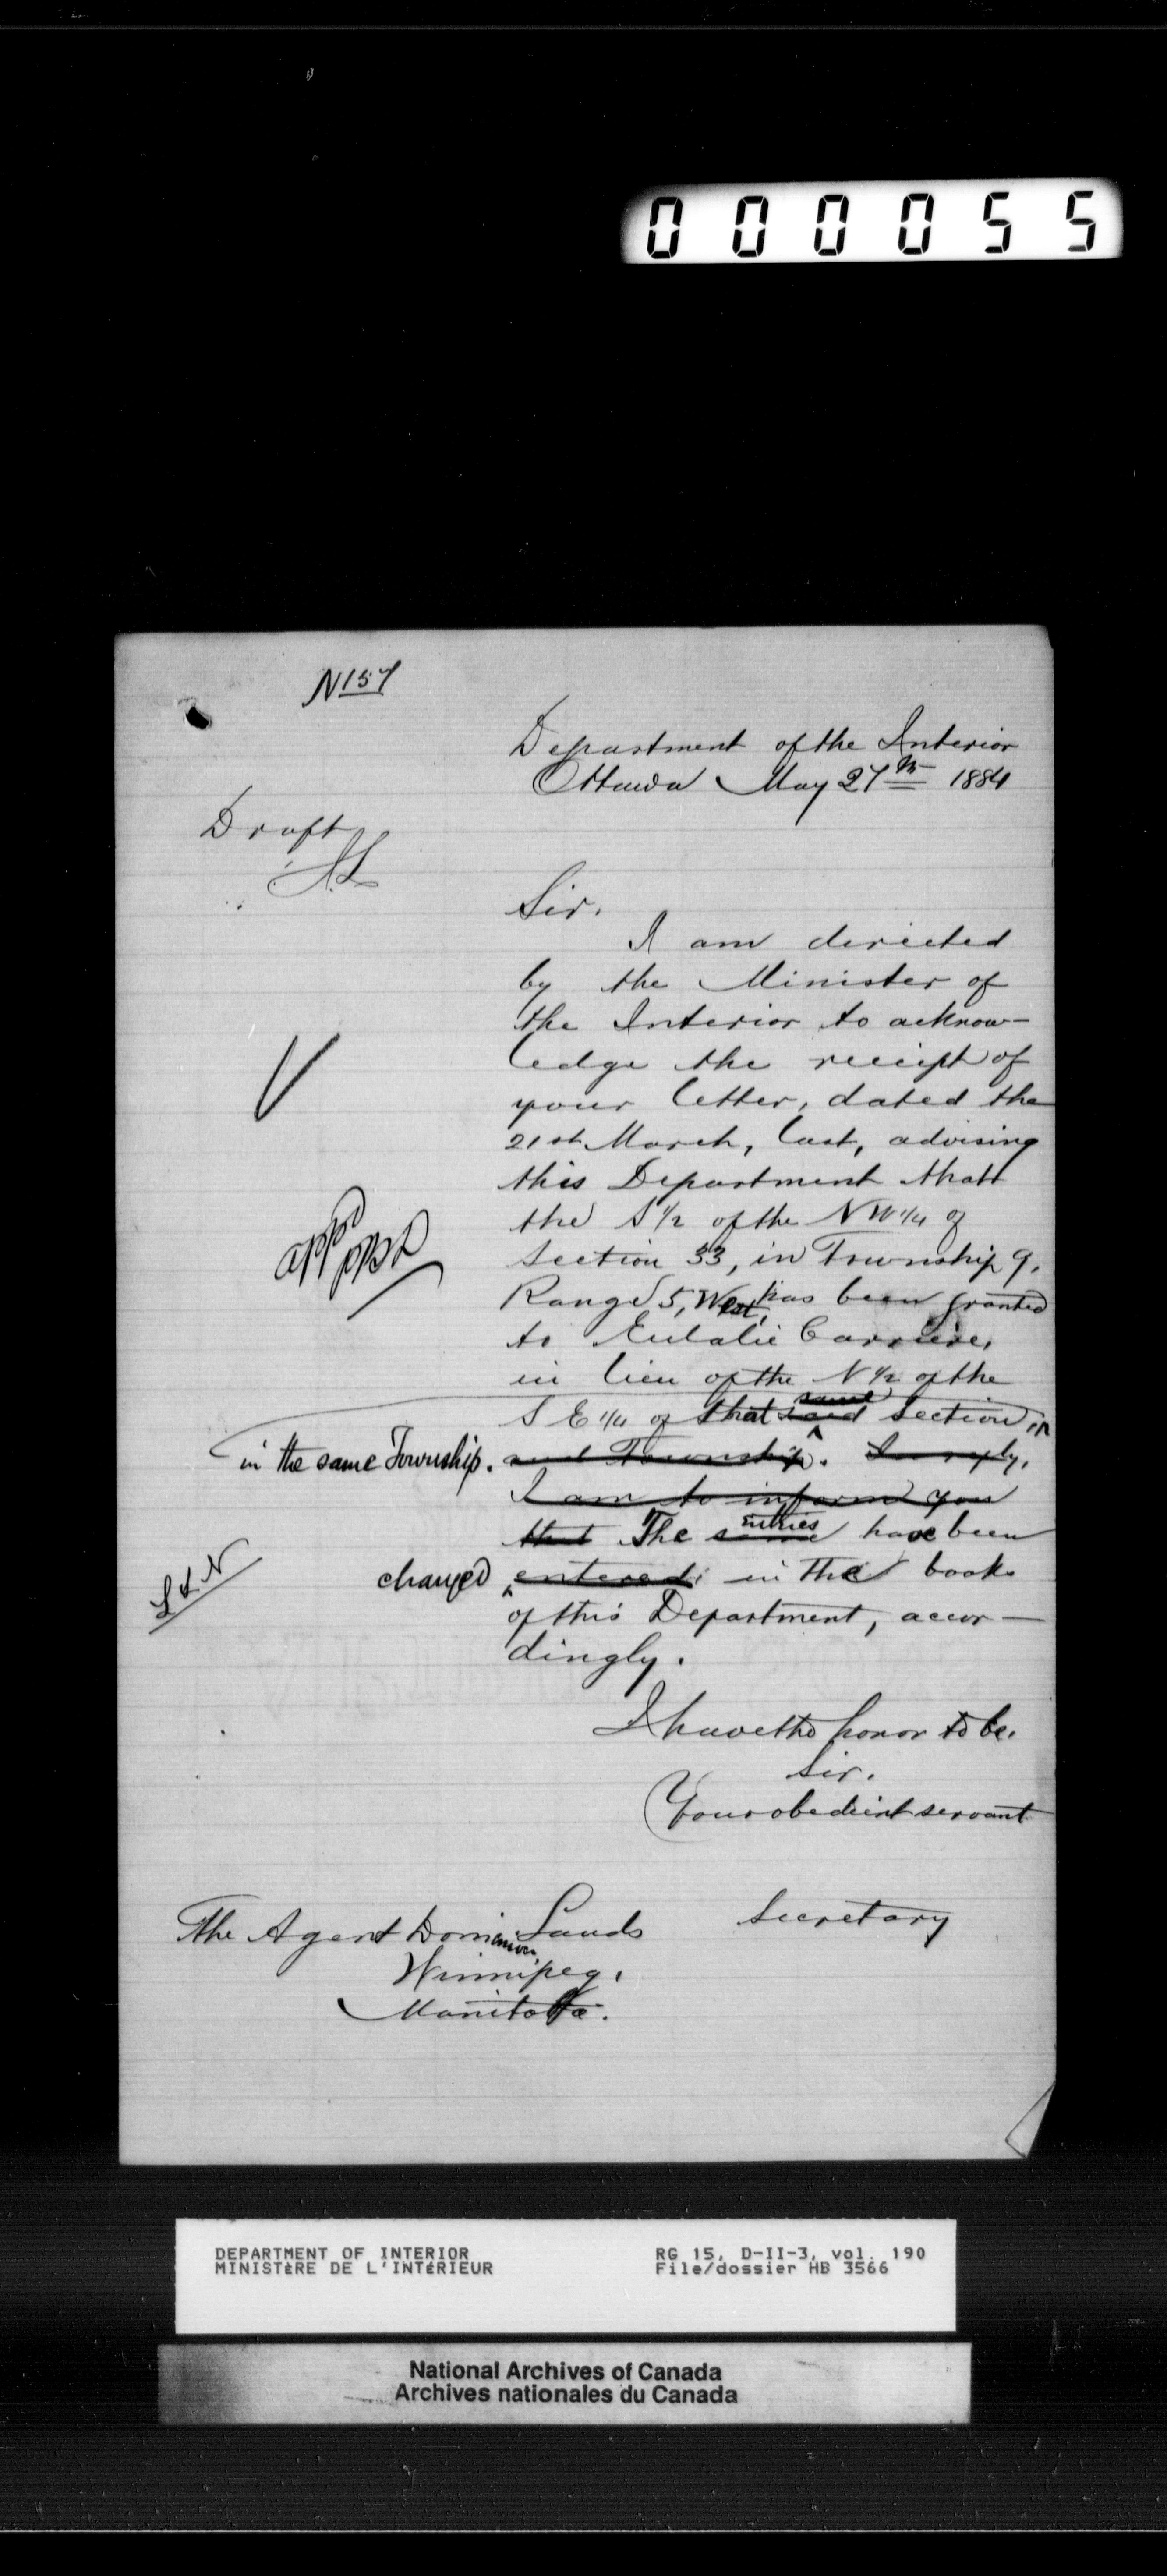 000055
N 157
Department of the Interior
Ottawa May 27th 1884
Draft
Sir.
I am directed
by the Minister of
the Interior to acknow-
ledge the receipt of
your letter, dated the
21st March, last, advising
this Department that
the S 1/2 of the NW 1/4 of
Section 33, in Township 9,
Range 5, West, has been granted
to Eulalie Carriere,
in lieu of the N 1/2 of the
S E 1/4 of that same said Section in
in the same Township. and Township. In reply,
I am to inform you
that The same entries have been
changed entered in the books
of this Department, accor-
dingly.
I have the honor to be.
Sir.
Your obedient servant
Secretary
The Agent Dominion Lands
Winnipeg,
Manitoba.
DEPARTMENT OF INTERIOR
MINISTÈRE DE L'INTÉRIEUR
RG 15, D-II-3, vol. 190
File/dossier HB 3566
National Archives of Canada
Archives nationales du Canada